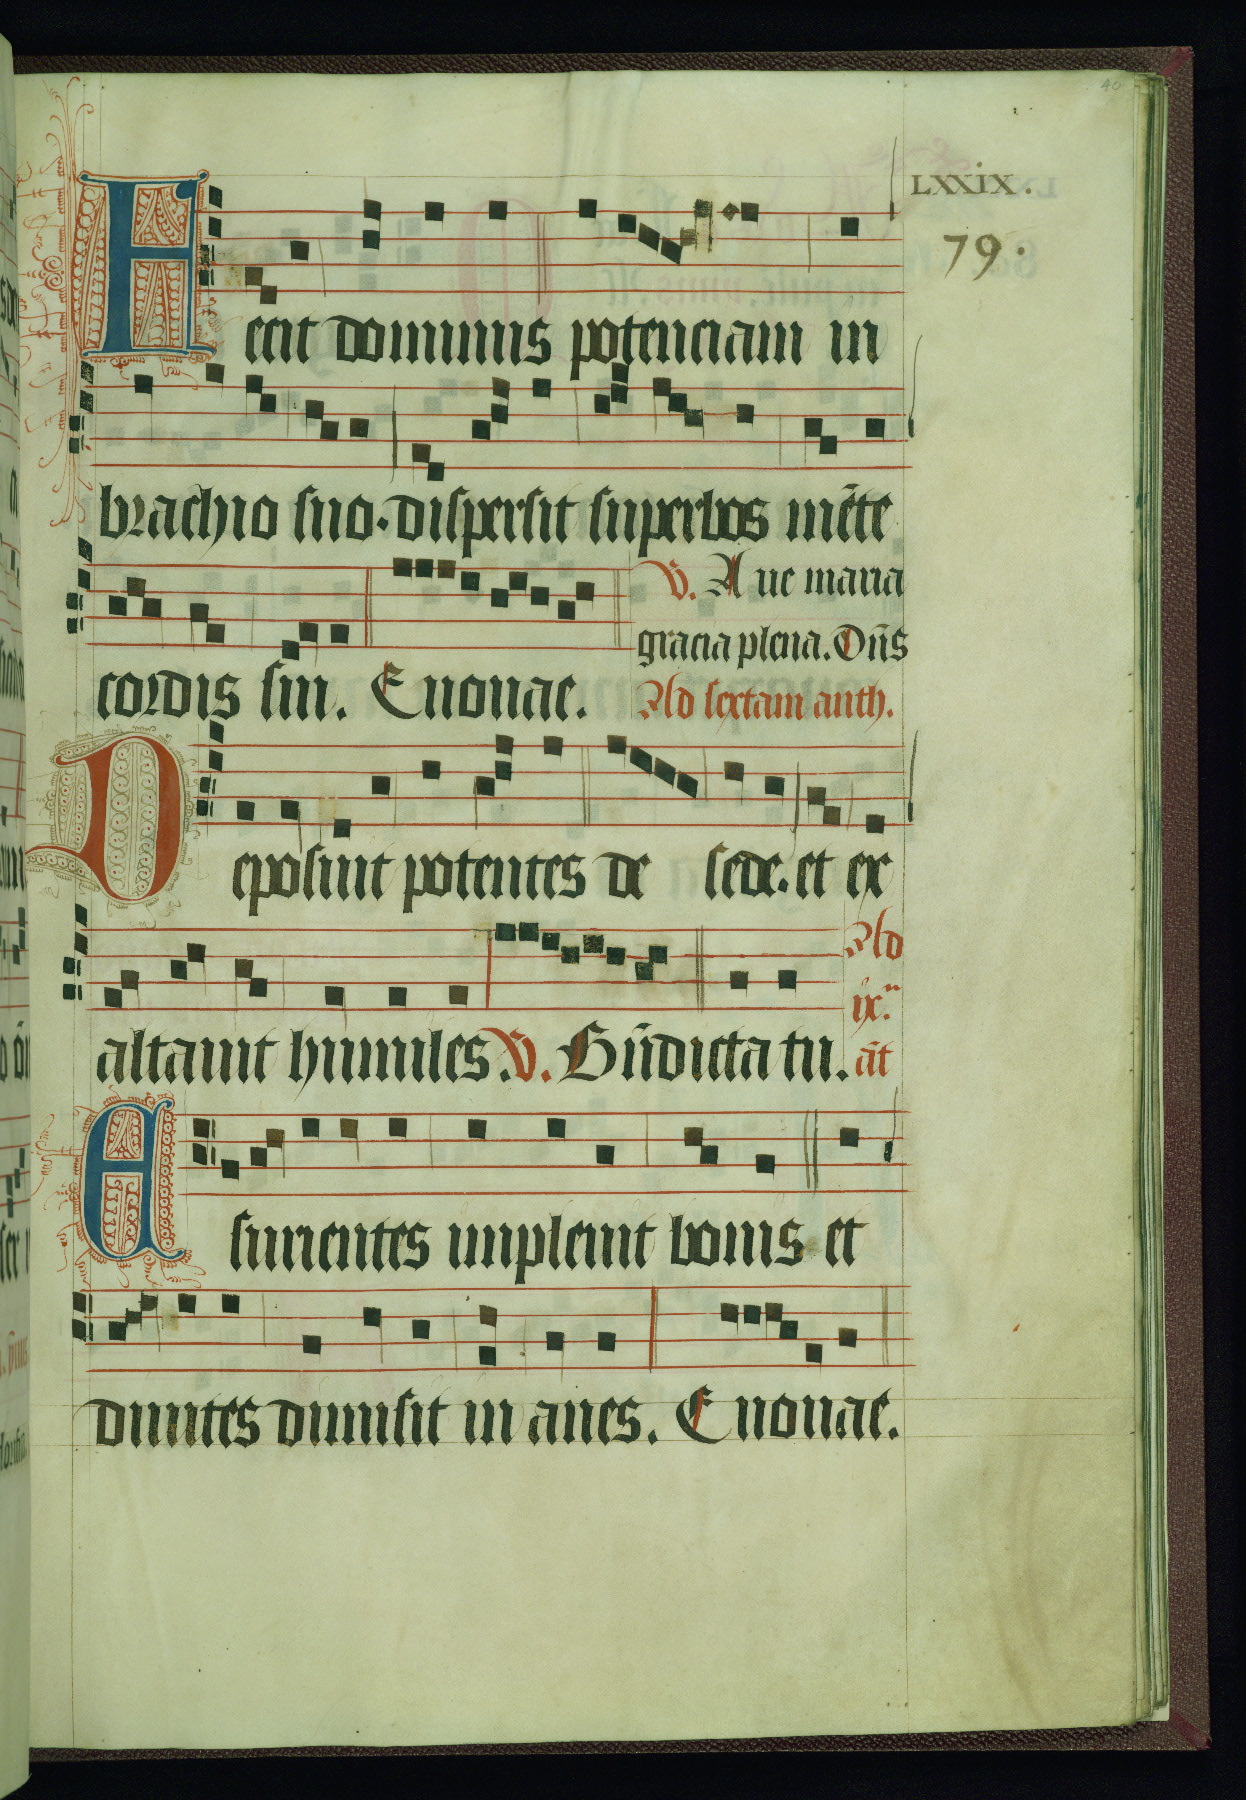 40
LXXIX.
79.
Fecit dominus potenciam in
brachio suo. dispersit superbos mēte
cordis sui. Euouae.
V. Aue maria
gracia plena. Dn̄s
Ad sextam anth.
Deposuit potentes de sede. et ex
altauit humiles. V. Bn̄dicta tu.
Ad
ix.
an̄t
Esurientes impleuit bonis et
diuites dimisit inanes. Euouae.